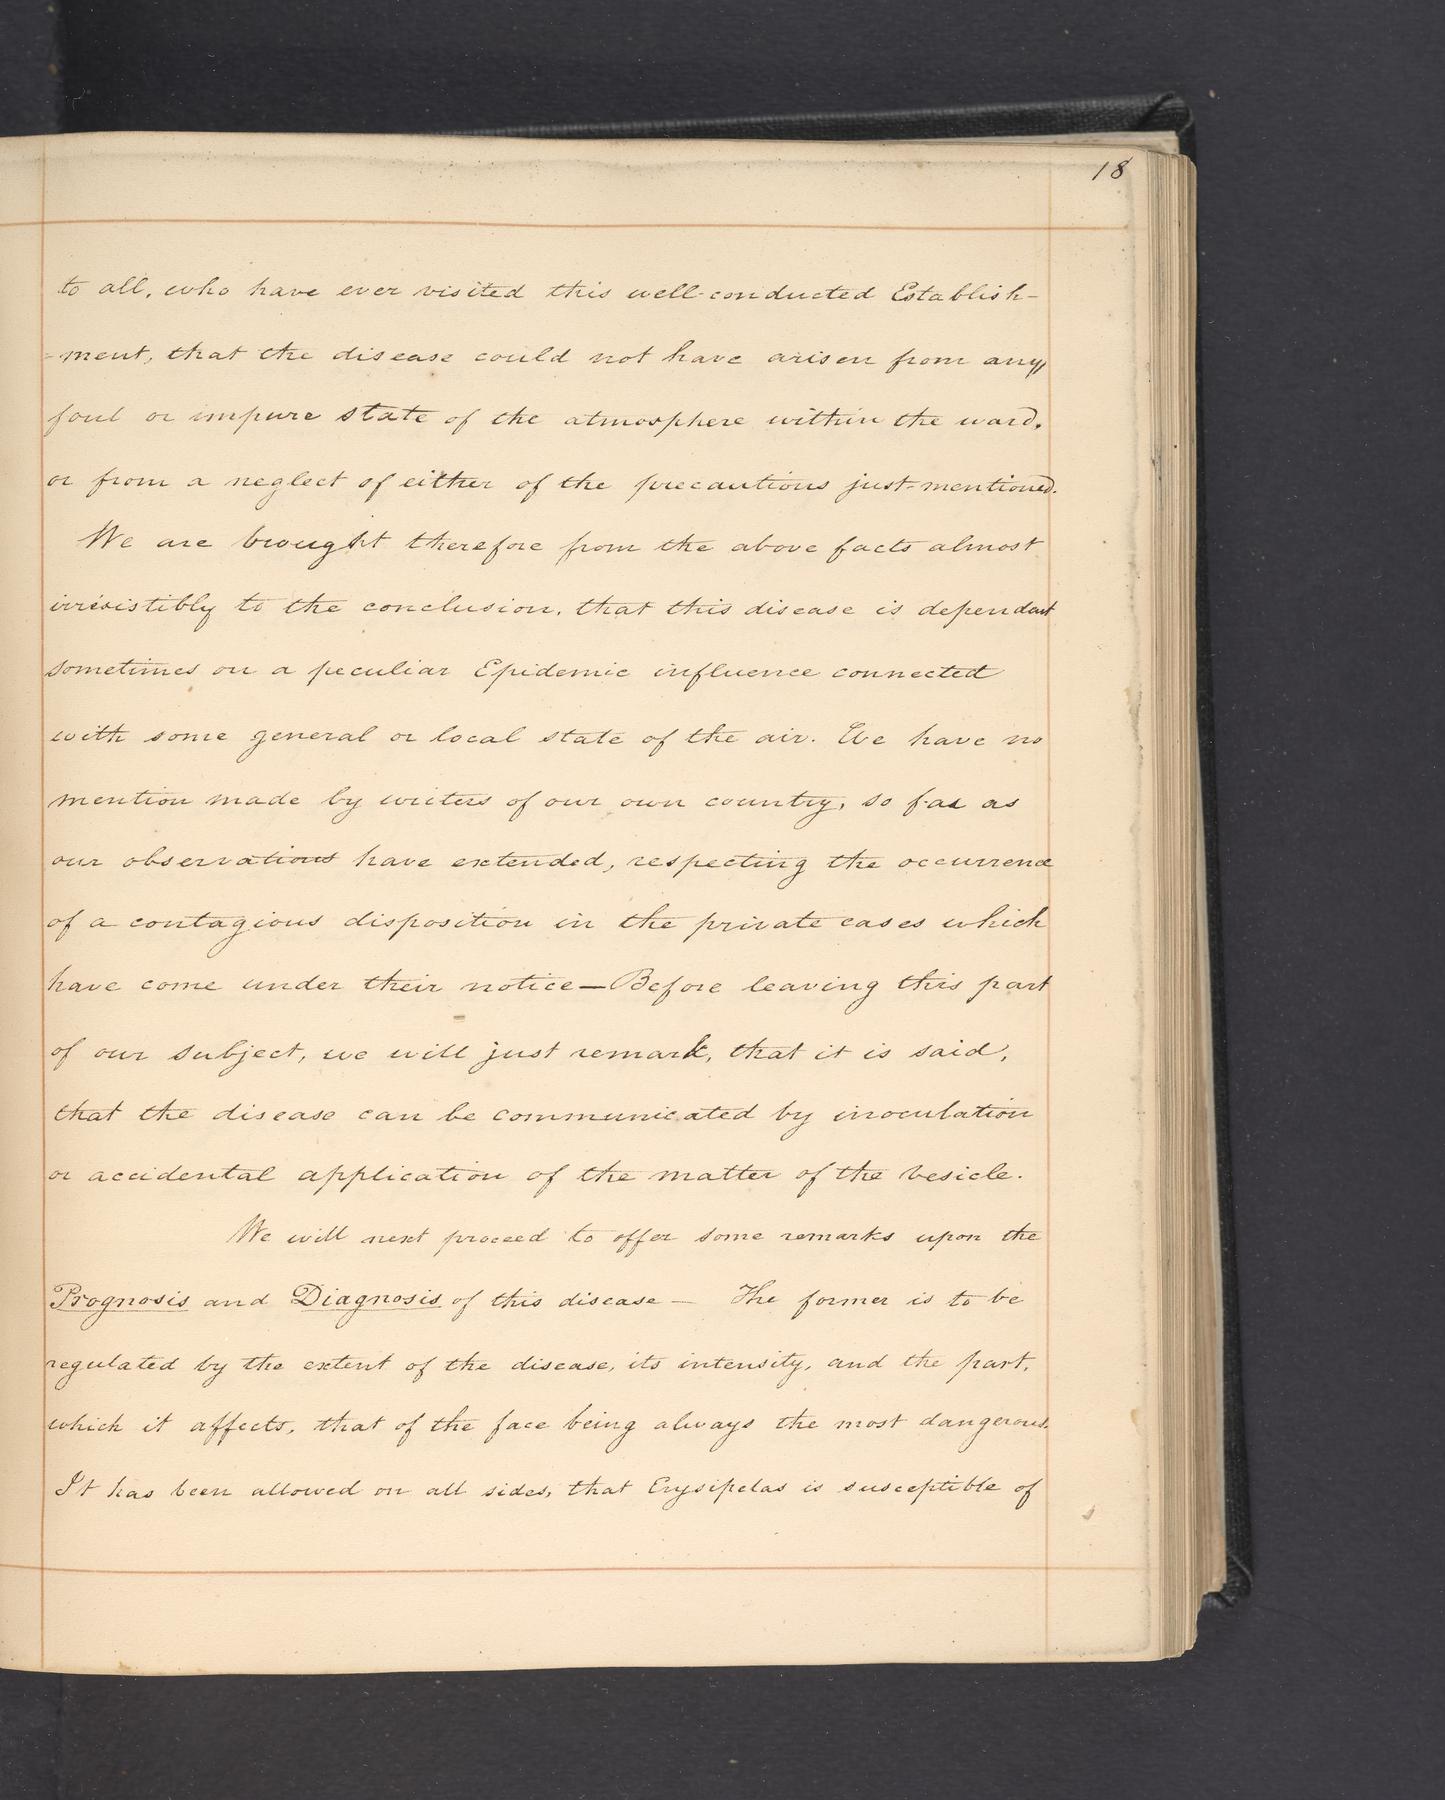 18
to all, who have ever visited this well-conducted Establish-
-ment, that the disease could not have arisen from any
foul or impure state of the atmosphere within the ward,
or from a neglect of either of the precautions just-mentioned.
We are brought therefore from the above facts almost
irresistibly to the conclusion, that this disease is dependant
sometimes on a peculiar Epidemic influence connected
with some general or local state of the air. We have no
mention made by writers of our own country, so far as
our observations have extended, respecting the occurrence
of a contagious disposition in the private cases which
have come under their notice—Before leaving this part
of our subject, we will just remark, that it is said,
that the disease can be communicated by inoculation
or accidental application of the matter of the vesicle.
We will next proceed to offer some remarks upon the
Prognosis and Diagnosis of this disease — The former is to be
regulated by the extent of the disease, its intensity, and the part,
which it affects, that of the face being always the most dangerous.
It has been allowed on all sides, that Erysipelas is susceptible of